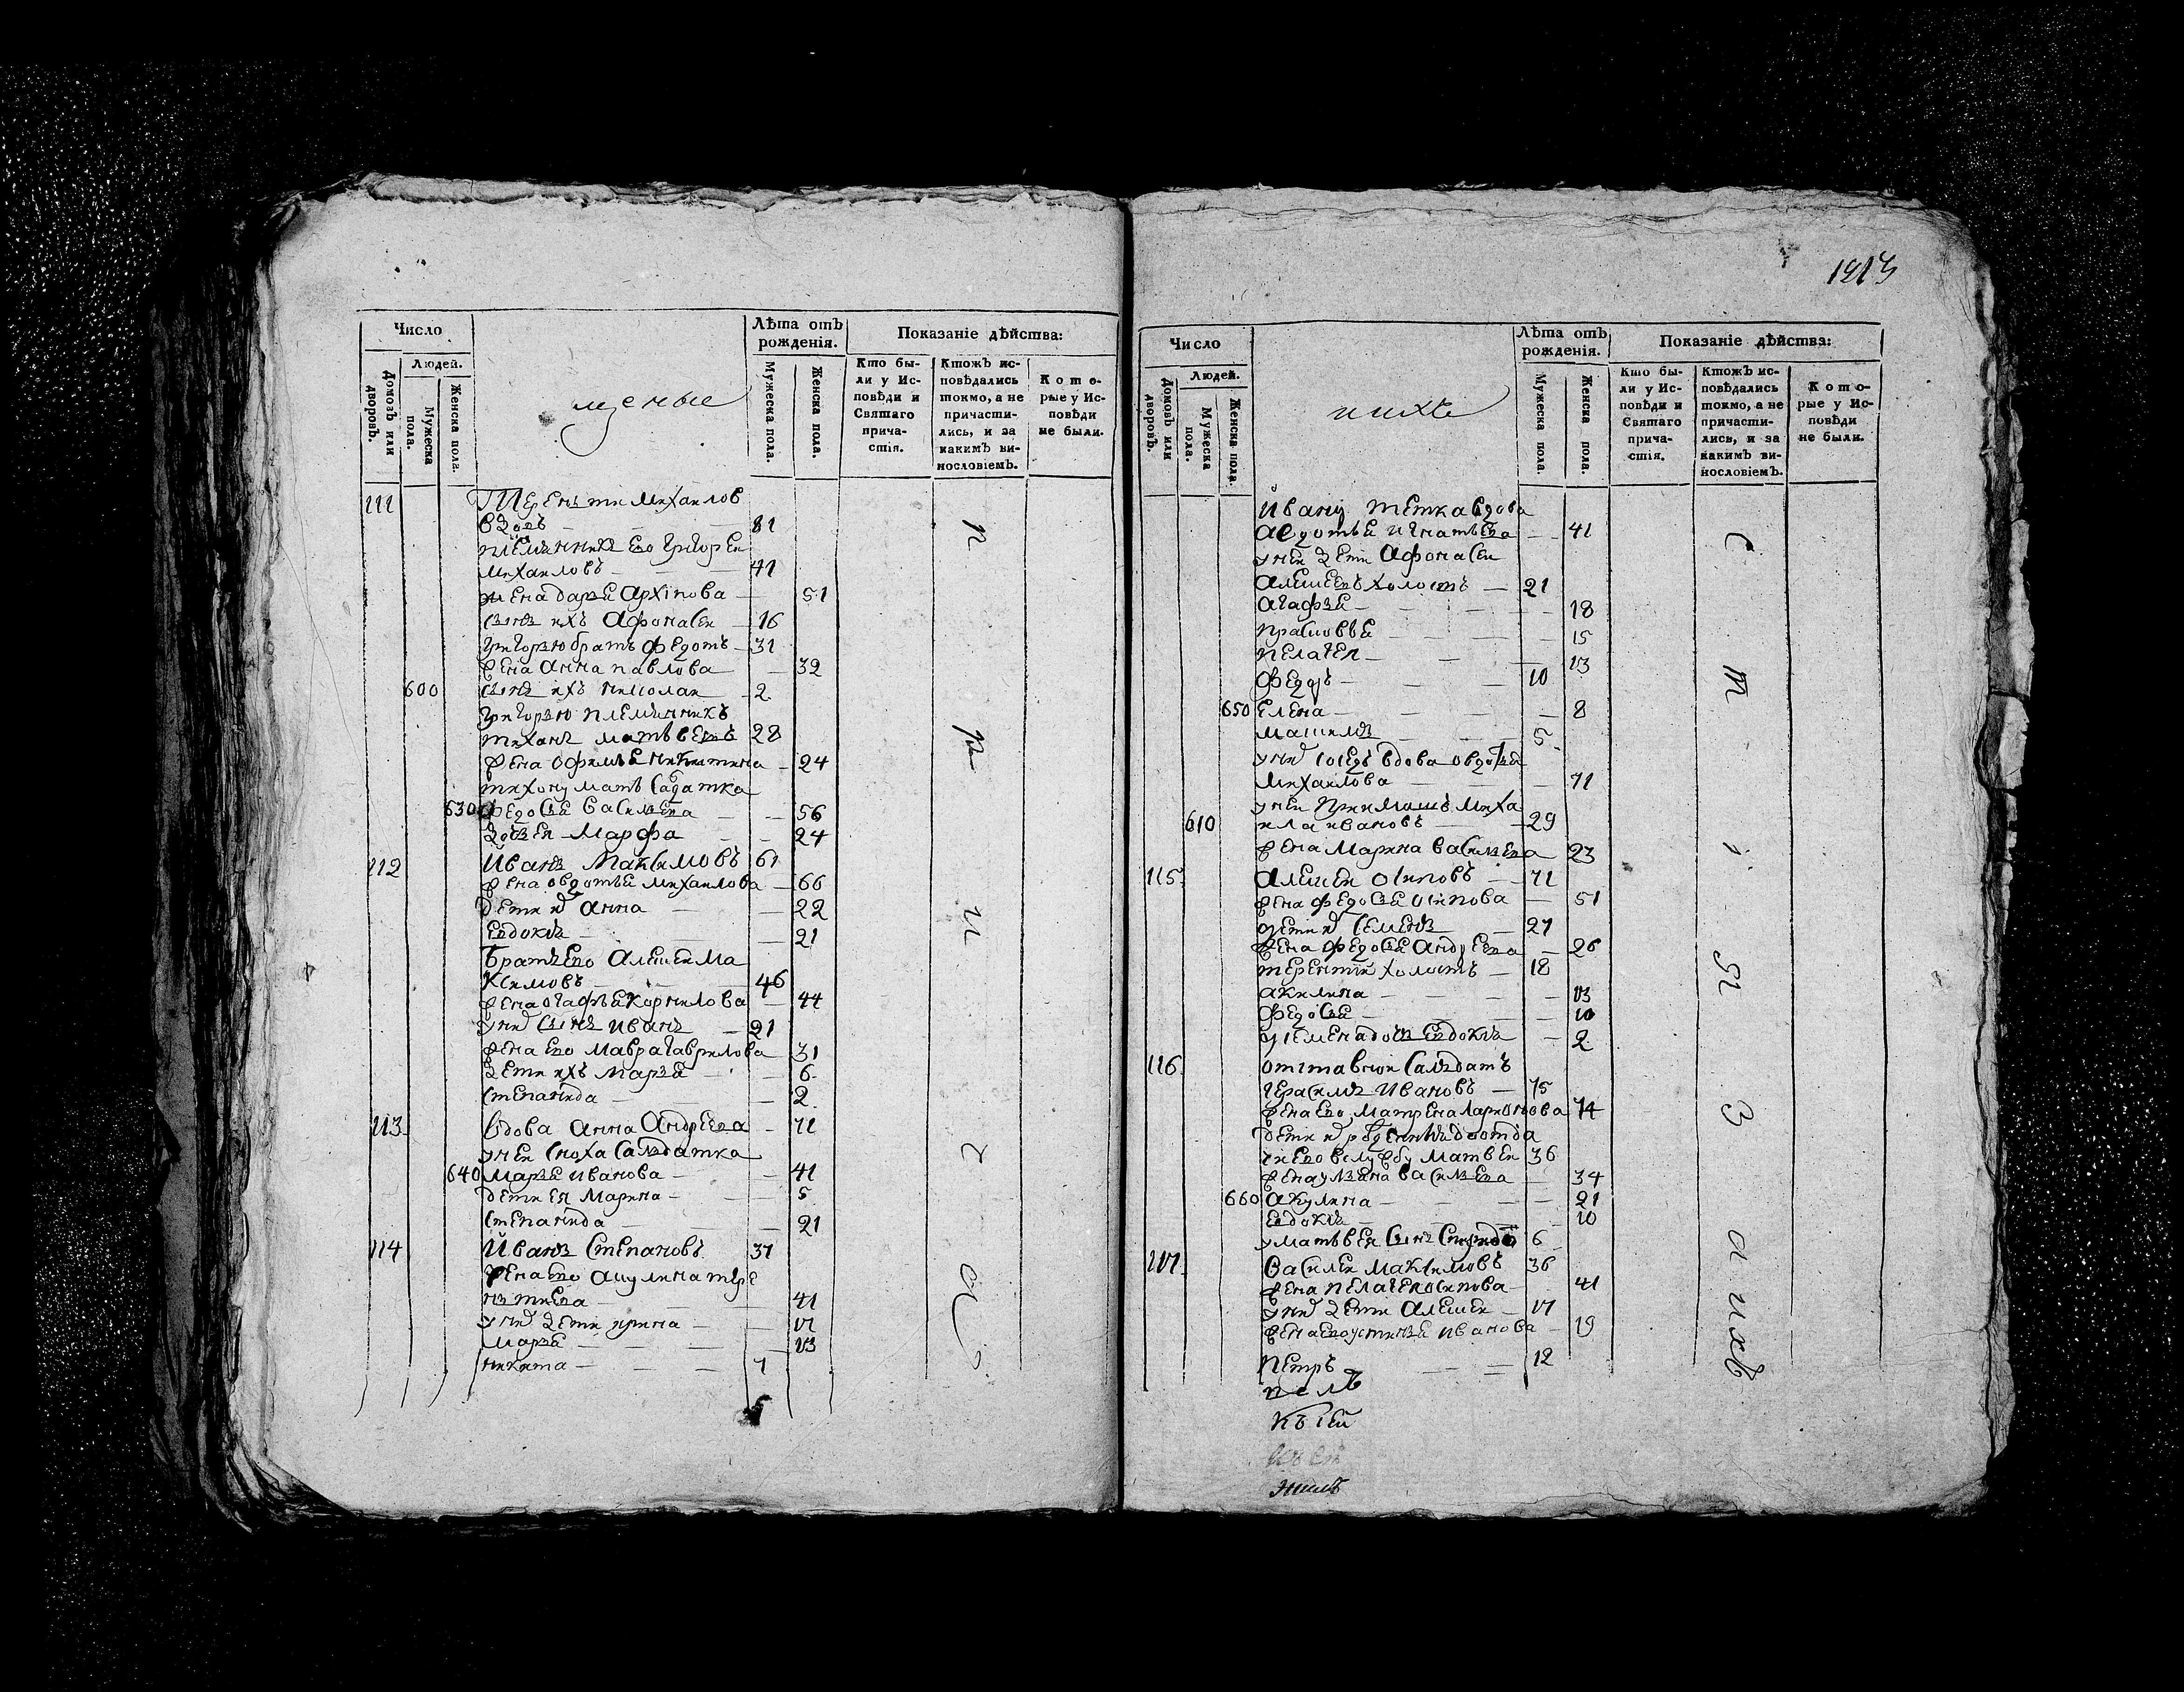 Число
Лѣта отъ рожденія.
Показаніе дѣйства:
Людей.
Домовъ или дворовъ.
Мужеска пола.
Женска пола.
Мужеска пола.
Женска пола.
Кто были у Исповѣди и Святаго причастія.
Ктожъ исповѣдались токмо, а не причастились, и за какимъ винословіемъ.
Которые у Исповѣди не были.
111 Терентïи Михаилов
вдовъ — 81
племянникъ Ево Григореи
михаиловъ — 41
жена дарья Архiпова — 51
сынъ ихъ Афонасеи — 16
григорью братъ Федотъ — 31
жена Анна павлова — 32
600 сынъ ихъ николаи — 2
григорью племянникъ
тихонъ матвеевъ 28
жена офимья никитина — 24
тихону мать салдатка
630 федосья васильева — 56
Марфа — 24
112 Иванъ Максимовъ 61
жена овдотья михаилова — 66
дети их анна — 22
Евдокия — 21
Братъ Ево Алексеи Ма
ксимовъ — 46
жена огафья корнилова — 44
у них сынъ иванъ — 21
жена Ево мавра гаврилова 31
дети ихъ марья — 6
степанида — 2
113 вдова анна Андреева — 71
у неи сноха салдатка
640 марья иванова — 41
дети ея марина — 5
степанида — 21
114 Иванъ Степановъ 37
жена Ево акулина тере
нтьева — 41
у них дети ирина — 17
марья — 13
никита — 7
1213
Число
Лѣта отъ рожденія.
Показаніе дѣйства:
Людей.
Домовъ или дворовъ.
Мужеска пола.
Женска пола.
нихъ
Мужеска пола.
Женска пола.
Кто были у Исповѣди и Святаго причастія.
Ктожъ исповѣдались токмо, а не причастились, и за какимъ винословіемъ.
Которые у Исповѣди не были.
Ивану тетка вдова
авдотья игнатьева — 41
у неи дети Афонасеи
алексеевъ холостъ — 21
агафья — 18
прасковья — 15
пелагея — 13
Федоръ — 10
650 Елена — 8
максимъ — 5
у них соседъ вдова овдотья
михаилова — 71
у неи приимышъ миха
610 ила ивановъ — 29
жена марина васильева 23
115 алексеи осиповъ — 71
жена федосья осипова — 51
дети их семенъ — 27
жена федосья андреева — 26
терентïи холостъ — 18
акилина — 13
федосья — 10
у семена дочь Евдокия — 2
116 отставнои салдатъ
герасимъ ивановъ — 75
жена Ево матрена ларионова 74
матвеи 36
жена ульяна васильева — 34
660 акулина — 21
Евдокия — 10
у матвея сынъ 6
117 Василеи максимовъ 36
жена пелагея осипова — 41
у них дети алексеи — 17
жена Ево устинья иванова — 19
петръ — 12